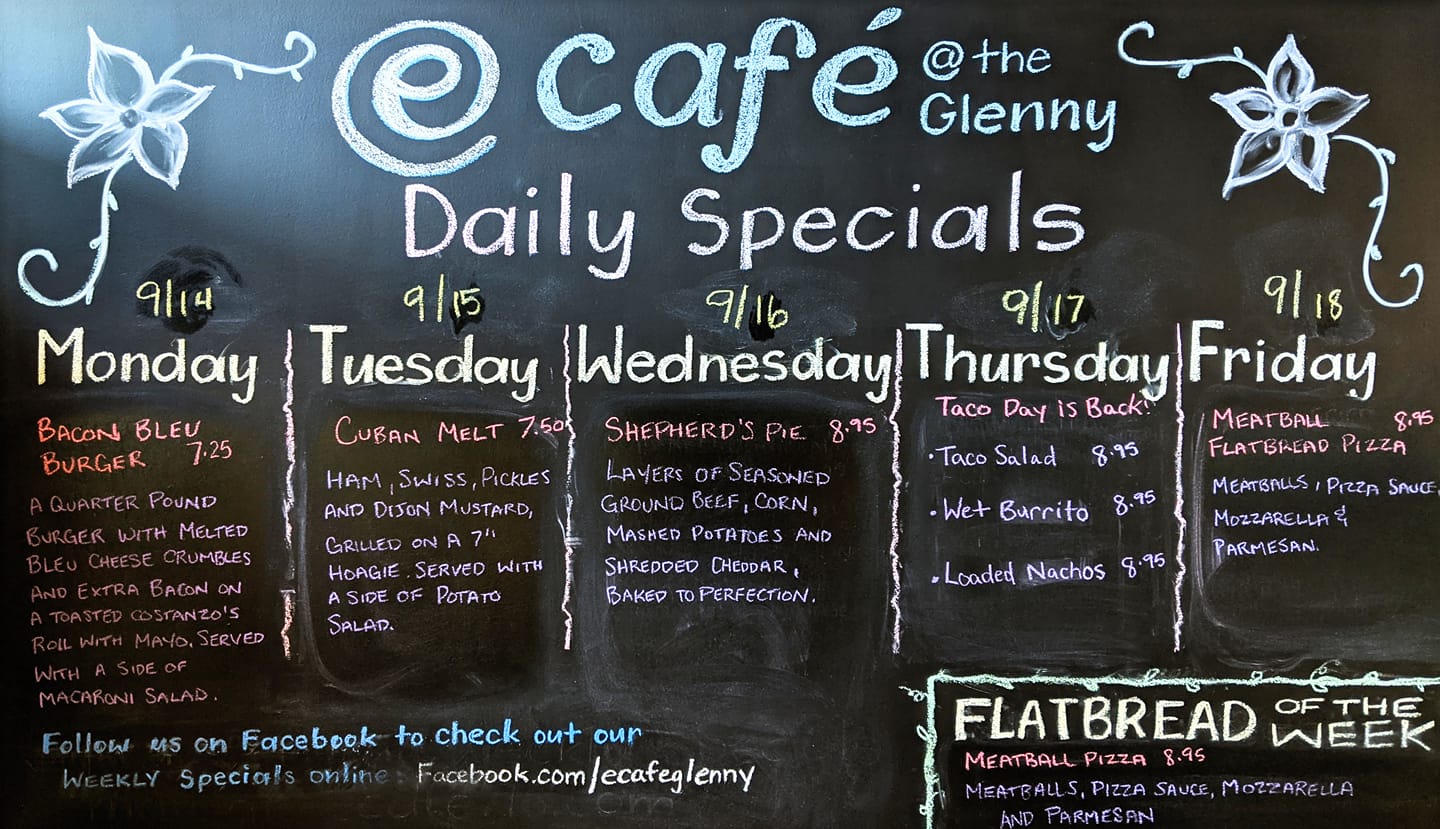 @ café @ the
Glenny
Daily Specials
9/14
Monday
BACON BLEU
BURGER 7.25
A QUARTER POUND
BURGER WITH MELTED
BLEU CHEESE CRUMBLES
AND EXTRA BACON ON
A TOASTED COSTANZO'S
ROLL WITH MAYO. SERVED
WITH A SIDE OF
MACARONI SALAD.
9/15
Tuesday
CUBAN MELT 7.50
HAM, SWISS, PICKLES
AND DIJON MUSTARD,
GRILLED ON A 7"
HOAGIE. SERVED WITH
A SIDE OF POTATO
SALAD.
9/16
Wednesday
SHEPHERD'S PIE 8.95
LAYERS OF SEASONED
GROUND BEEF, CORN,
MASHED POTATOES AND
SHREDDED CHEDDAR,
BAKED TO PERFECTION.
9/17
Thursday
Taco Day is Back!
• Taco Salad 8.95
• Wet Burrito 8.95
• Loaded Nachos 8.95
9/18
Friday
MEATBALL 8.95
FLATBREAD PIZZA
MEATBALLS, PIZZA SAUCE,
MOZZARELLA &
PARMESAN.
Follow us on Facebook to check out our
WEEKLY Specials online: Facebook.com/ecafeglenny
FLATBREAD OF THE WEEK
MEATBALL PIZZA 8.95
MEATBALLS, PIZZA SAUCE, MOZZARELLA
AND PARMESAN